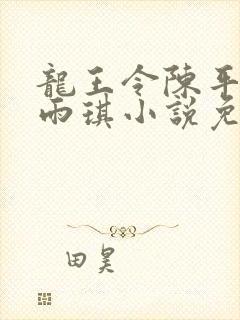 龍王令陳平
雨琪小說免
田昊